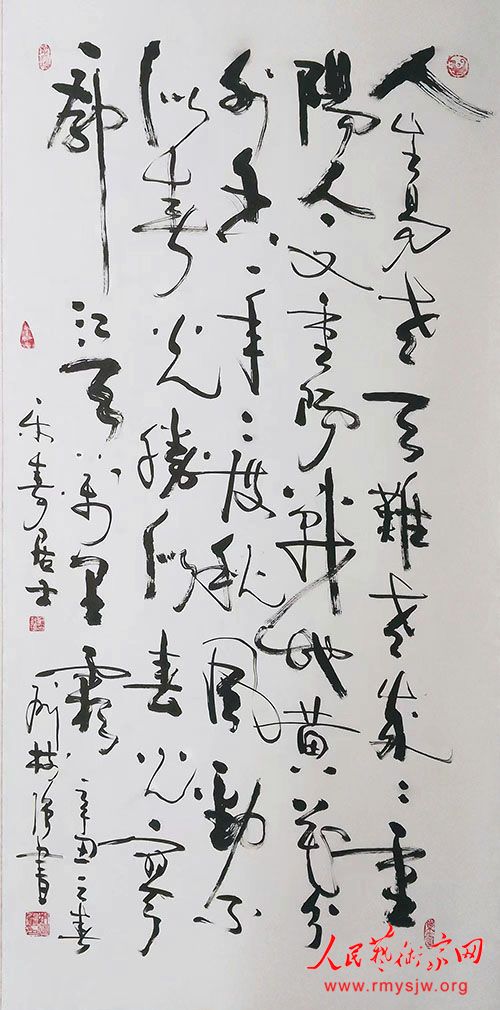 人生易老天難老歲〻重
陽今又重陽戰地黄花分
外香一年一度秋風勁不
似春光勝似春光寥
廓江天万里霜 辛丑之春
乐寿居士 书
人民藝術家网
www.rmysjw.org